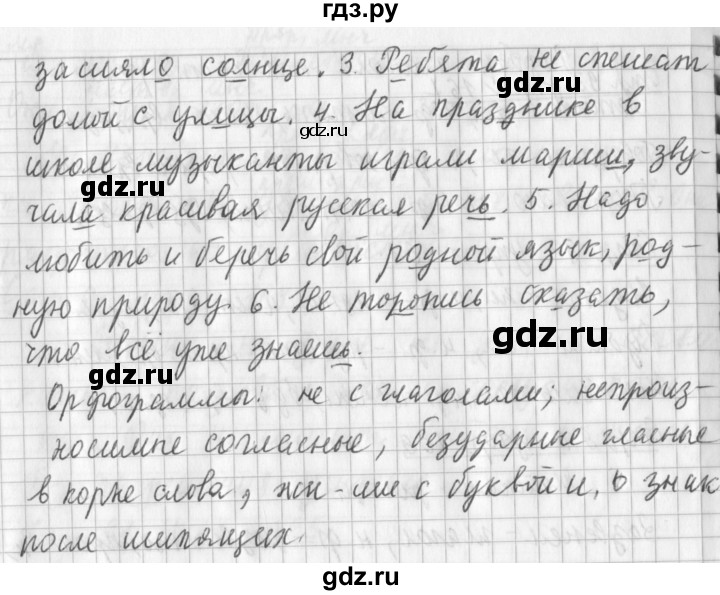 гдз.ру
засияло солнце. 3. Ребята не спешат
домой с улицы. 4. На празднике в
gdz.ru
школе музыканты играли марши, зву-
gdz.ru
gdz.ru
чала красивая русская речь. 5. Надо
любить и беречь свой родной язык, род-
ную природу. 6. Не торопись сказать,
gdz.ru
что всё уже знаешь.
gdz.ru
Орфограммы: не с глаголами; непроиз-
носимые согласные, безударные гласные
gdz.ru
в корне слова, жи-ши с буквой и, ь знак
после шипящих.
gdz.ru
gdz.ru